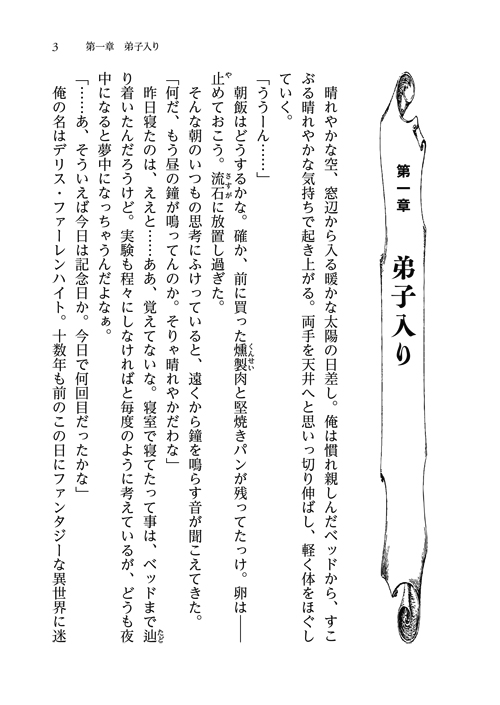 3　第一章　弟子入り
第一章
弟子入り
　晴れやかな空、窓辺から入る暖かな太陽の日差し。俺は慣れ親しんだベッドから、すこ
ぶる晴れやかな気持ちで起き上がる。両手を天井へと思いっ切り伸ばし、軽く体をほぐし
ていく。
「ううーん……」
　朝飯はどうするかな。確か、前に買った燻製肉と堅焼きパンが残ってたっけ。卵は――
止めておこう。流石に放置し過ぎた。
　そんな朝のいつもの思考にふけっていると、遠くから鐘を鳴らす音が聞こえてきた。
「何だ、もう昼の鐘が鳴ってんのか。そりゃ晴れやかだわな」
　昨日寝たのは、ええと……ああ、覚えてないな。寝室で寝てたって事は、ベッドまで辿
り着いたんだろうけど。実験も程々にしなければと毎度のように考えているが、どうも夜
中になると夢中になっちゃうんだよなぁ。
「……あ、そういえば今日は記念日か。今日で何回目だったかな」
　俺の名はデリス・ファーレンハイト。十数年も前のこの日にファンタジーな異世界に迷